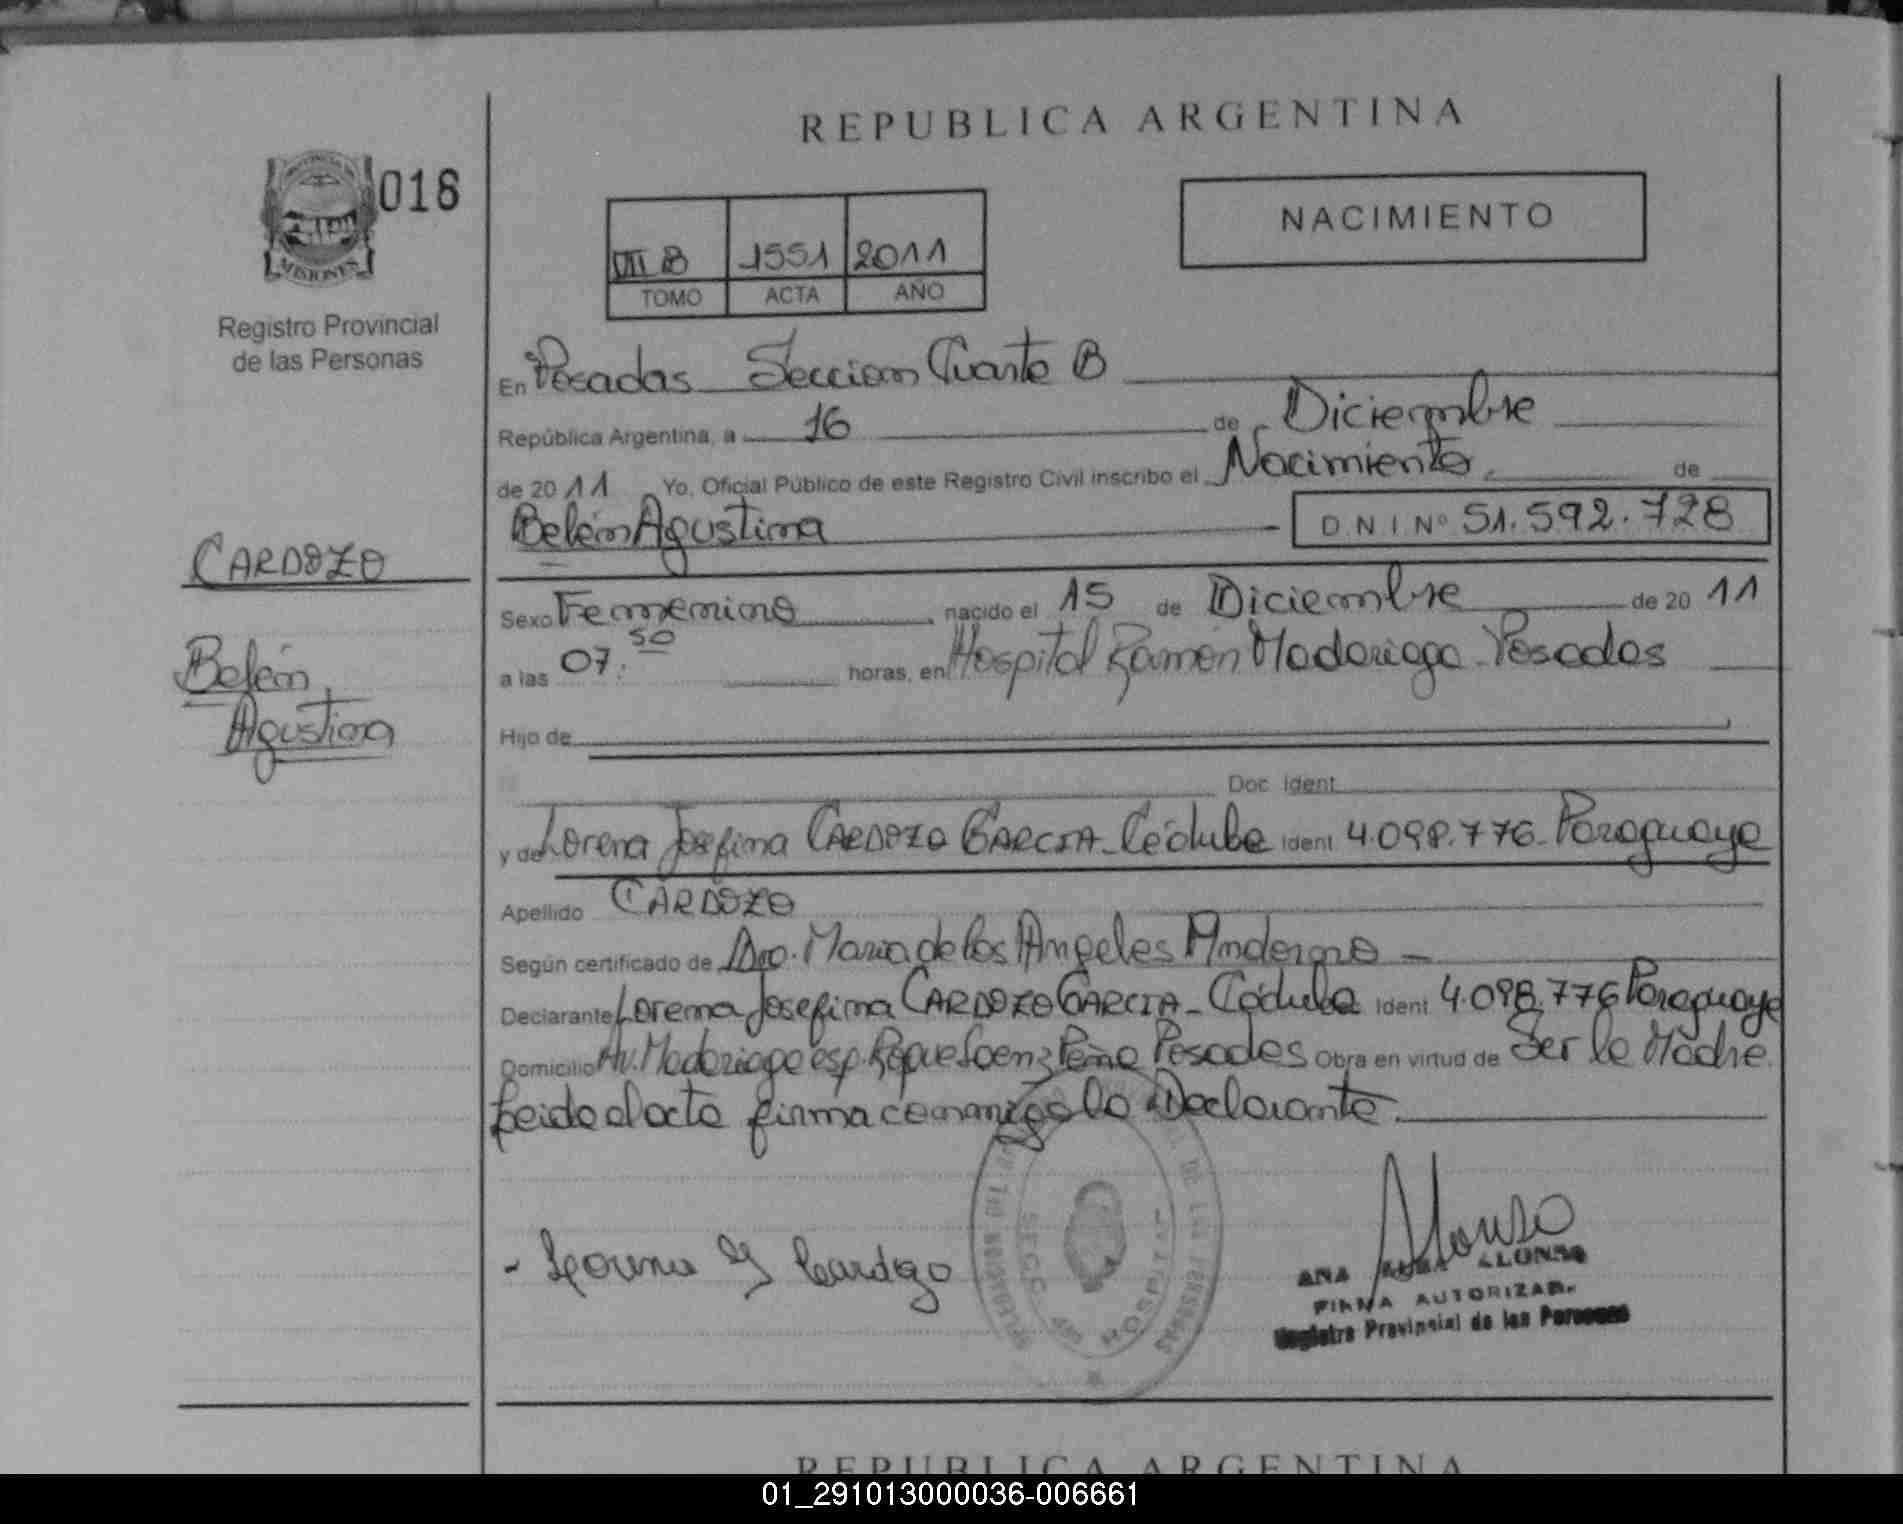 REPUBLICA ARGENTINA
018
NACIMIENTO
MISIONES
III B 1551 2011
TOMO ACTA AÑO
Registro Provincial
de las Personas
En Posadas Seccion Cuarta B
República Argentina, a 16 de Diciembre
de 2011 Yo, Oficial Público de este Registro Civil inscribo el Nacimiento de
Belén Agustina D.N.I. Nº 51.592.728
CARDOZO
Belén
Agustina
Sexo Femenino nacido el 15 de Diciembre de 2011
a las 07.50 horas, en Hospital Ramón Madariaga Posadas
Hijo de
Doc. Ident.
y de Lorena Josefina CARDOZO GARCIA - Cédula Ident 4.098.776 - Paraguaya
Apellido CARDOZO
Según certificado de Dra. Maria de los Angeles
Declarante Lorena Josefina CARDOZO GARCIA - Cédula Ident 4.098.776 Paraguaya
Domicilio Av. Madariaga esq. Roque Saenz Peña Posadas Obra en virtud de Ser la Madre.
Leida el acta firma conmigo la Declarante
- Lorena J Cardozo
SECC. 4º B HOSPITAL
DE LAS PERSONAS
Alonso
ANA ALONSO
FIRMA AUTORIZADA
Registro Provincial de las Personas
REPUBLICA ARGENTINA
01_291013000036-006661